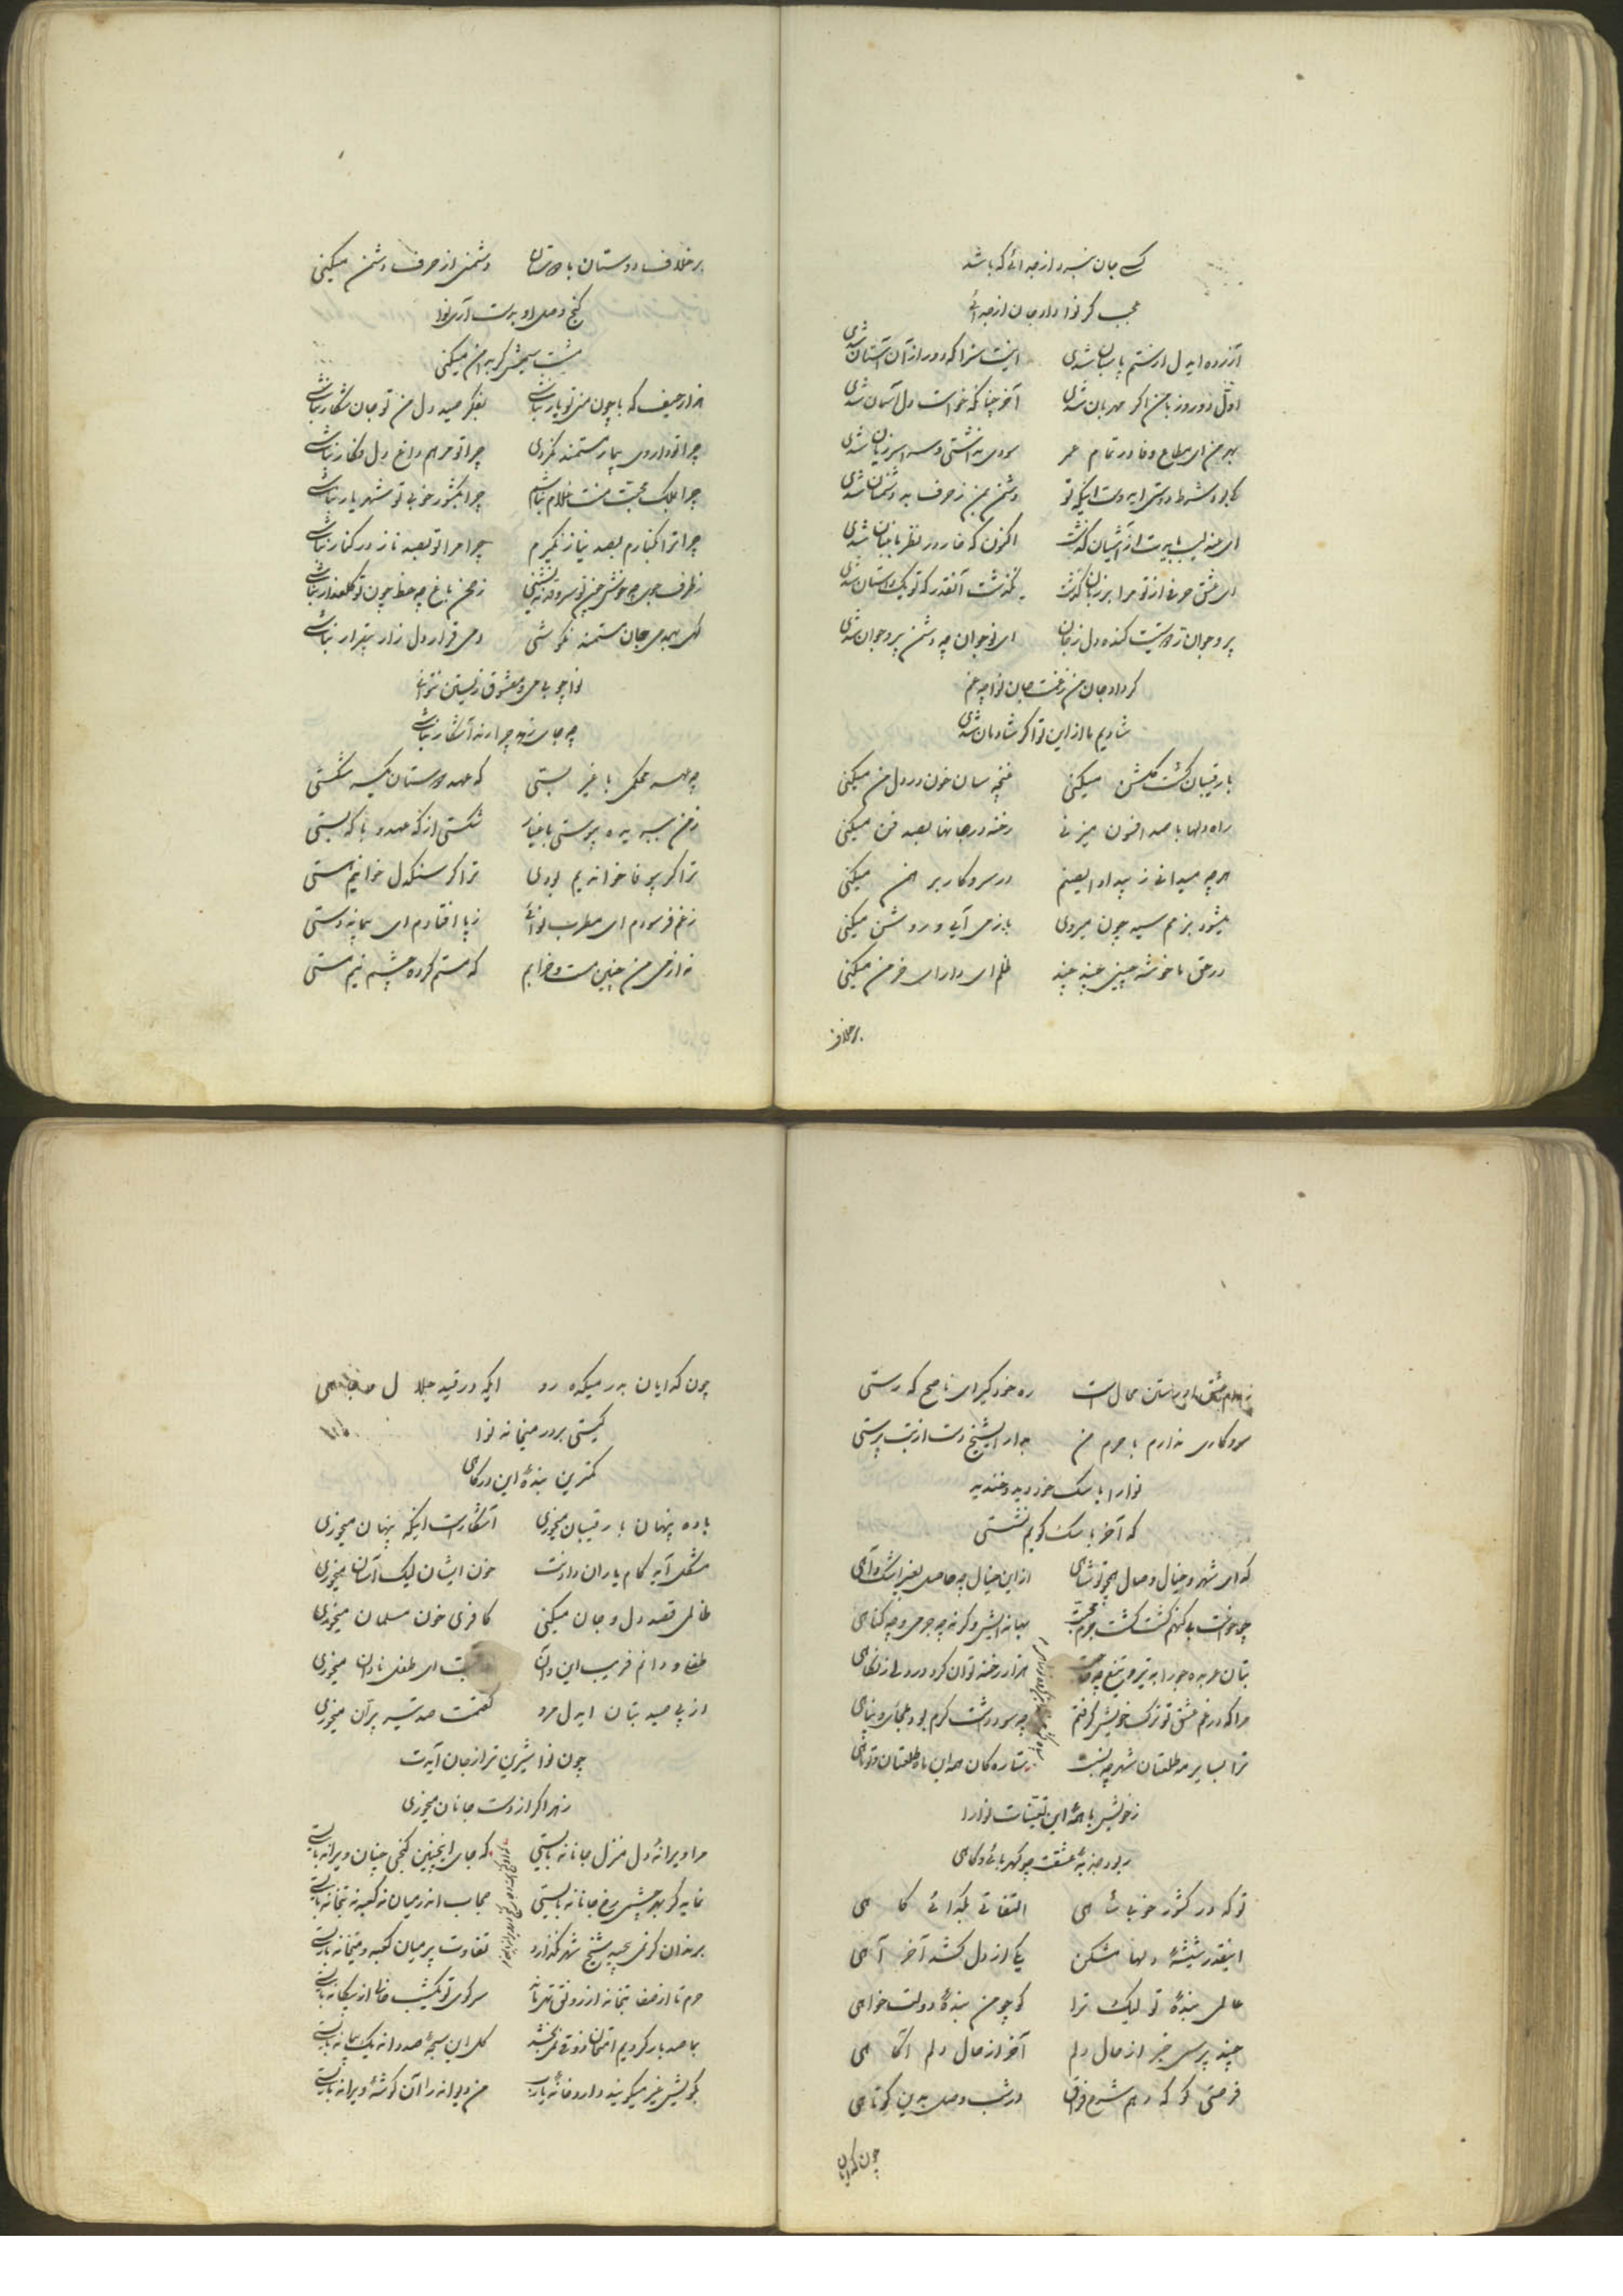 کسی جان نسپرد از جدائی که باشد
عجب گر نوا دارد جان از جدائی
آزرده ایدل از ستم پاسبان شدی اینت سزا که دور از آن آستان شدی
اول دو روز با من اگر مهربان شدی آخر چنانکه خواست دل آسمان شدی
بهر من ای متاع وفا در تمام عمر سودی نداشتی و سراسر زیان شدی
کی بود شرط دوستی ایدوست اینکه تو دشمن بمن ز حرف بد دشمنان شدی
ای عندلیب بایدت از آشیان گذشت اکنون که خار در نظر باغبان شدی
ای عشق حرفی از تو مرا بر زبان گذشت نگذشت آنقدر که تو یک داستان شدی
پیر و جوان ز دستت کنده دل ز جان ای نوجوان چه دشمن پیر و جوان شدی
گر داد جان من ز غمت جان نوا چه غم
شادیم ما از این تو اگر شادمان شدی
با رقیبان گشت گلشن میکنی غنچه سان خون در دل من میکنی
راه دلها با صد افسون میزنی رخنه در جانها بصد فن میکنی
هر چه میدانی ز بیداد ایصنم در سر و کار برهمن میکنی
میشود بزمم سیه چون میروی باز می آیی و روشن میکنی
در حق ما خوشه چینی چند چند ظلم ای دارای خرمن میکنی
بر خلاف
بر خلاف دوستان با دوستان دشمنی از حرف دشمن میکنی
گنج وصل او بدست آری نوا
مشت سیمش گر بدامن میکنی
هزار حیف که با چون منی تو یار نباشی بفکر صید دل من تو جان شکار نباشی
چرا تو داروی بیمار مستمند نگردی چرا تو مرهم داغ دل فکار نباشی
چرا بملک محبت منت غلام نباشم چرا بکشور خوبی تو شهریار نباشی
چرا ترا بکنارم بصد نیاز نگیرم چرا مرا تو بصد ناز در کنار نباشی
ز طرف جوی چه خوش چون تو سرو قد ننشینی ز صحن باغ چه حظ چون تو گلعذار نباشی
گهی بهمدمی جان مستمند نکوشی دمی قرار دل زار بیقرار نباشی
نوا چو بی می و معشوق زیستن نتوانی
چه جای زهد چرا رند آشکار نباشی
چه عهد محکمی با غیر بستی که عهد دوستان یکسر شکستی
ز من ببریده پیوستی باغیار شکستی از که عهد و با که بستی
ترا گر بیوفا خواندیم بودی ترا گر سنگدل خوانیم هستی
ز غم فرسودم ای مطرب نوائی ز پا افتادم ای پیمانه دستی
نه از می من چنین مست و خرابم که مستم کرده چشم نیم مستی
ز دام عشق رستن محال است ره خود گیر ای ناصح که رستی
سر و کاری ندارم با حرم من بدار ایشیخ دست از بت پرستی
نوا را با سگ خود دید و خندید
که آخر با سگ کویم نشستی
گدای شهر و خیال وصال همچو تو شاهی از این خیال چه حاصل بغیر اشک و آهی
چو خواست بی گنهم کشت گشت جرم محبت بهانه ایش وگرنه چه جرمی و چه گناهی
بتان عربده جو را به تیر و تیغ چه حاجت هزار رخنه توان کرد در دلی ز نگاهی
مرا که در غم عشق تو ترک خویش گرفتم
ترا بسایر مه طلعتان شهر چه نسبت ستاره گان همه این ماه طلعتان و تو ماهی
ز خویش با همه این تعینات نوا را
ربود جذبه عشقت چو کهربائی و کاهی
تو که در کشور خوبی شاهی التفاتی بگدائی گاهی
اینقدر شیشه دلها مشکن یکی از دل کشد آخر آهی
عالمی بنده تو لیک ترا کو چو من بنده دولتخواهی
چند پرسی خبر از حال دلم آخر از حال دلم آگاهی
فرصتی کو که دهم شرح فراق در شب وصل بدین کوتاهی
چون گدایان
چون گدایان بدر میکده رو ایکه در قید جلال و جاهی
کیستی بر در میخانه نوا
کمترین بنده این درگاهی
باده پنهان با رقیبان میخوری آشکار است اینکه پنهان میخوری
مشکل آید کام یاران دادنت خون ایشان لیک آسان میخوری
ظالمی قصد دل و جان میکنی کافری خون مسلمان میخوری
طفلی و دانم فریب این و آن ای طفل نادان میخوری
از پی صید بتان ایدل مرو گفتمت صد تیر پران میخوری
چون نوا شیرین تر از جان آیدت
زهر اگر از دست جانان میخوری
مرا ویرانه دل منزل جانانه بایستی که جای اینچنین گنجی چنان ویرانه بایستی
نماید گر بهر چشمی رخ جانانه بایستی حجاب اندر میان نه کعبه نه بتخانه بایستی
برندان گر نمی پیچید شیخ شهر نگذارد تفاوت پر میان کعبه و میخانه بایستی
حرم تا از صفا بتخانه از رونق تهی ماند سر کوی تو یکشب خالی از بیگانه بایستی
بما صد بار کردیم امتحان ذوقی نمی بخشد گل این سبحه صد دانه یک پیمانه بایستی
بکویش غیر میگویند دارد خانه یا رب من دیوانه را آن گوشه ویرانه بایستی